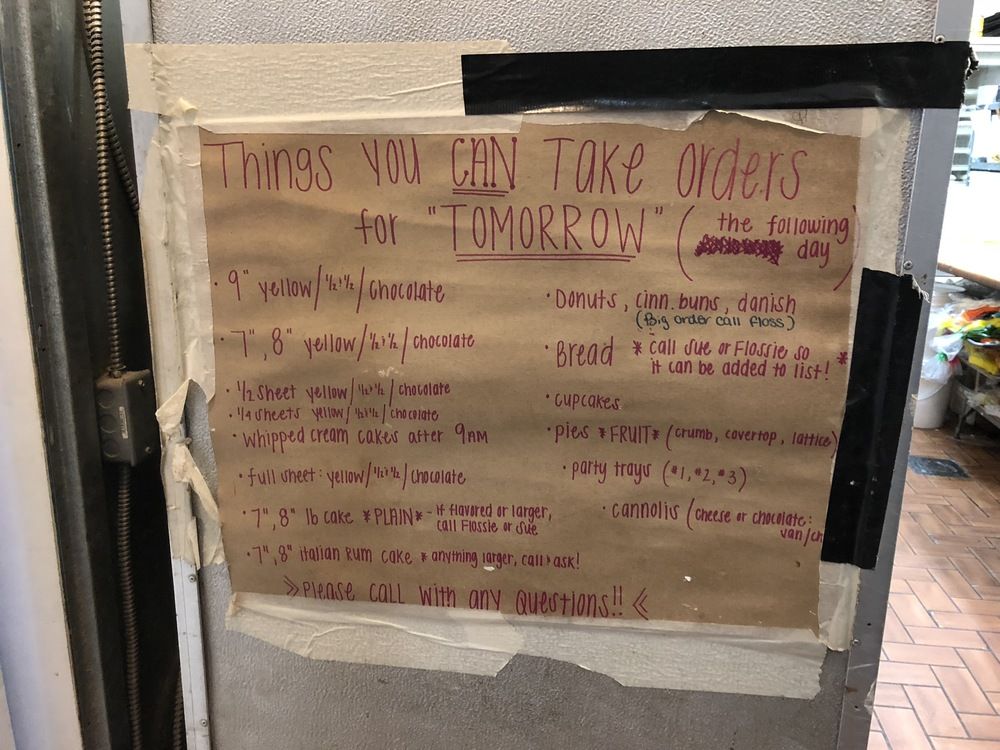 Things you CAN Take orders
for "TOMORROW" (the following
day)
• 9" yellow/½+½/chocolate
• 7", 8" yellow/½+½/chocolate
• ½ sheet yellow/½+½/chocolate
• ¼ sheets yellow/½+½/chocolate
• whipped cream cakes after 9AM
• full sheet: yellow/½+½/chocolate
• 7", 8" lb cake *PLAIN* - if flavored or larger,
call Flossie or Sue
• 7", 8" Italian Rum cake * anything larger, call + ask!
• Donuts, cinn. buns, danish
(Big order call Floss)
• Bread * call Sue or Flossie so
it can be added to list! *
• cupcakes
• pies *FRUIT* (crumb, covertop, lattice)
• party trays (#1, #2, #3)
• cannolis (cheese or chocolate:
van/ch
>> Please call with any Questions!! <<